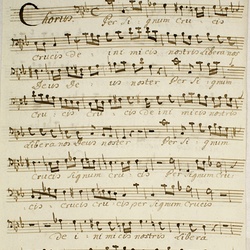 Chorus. Per Si gnum Cru cis
Crucis De i ni mi cis nostris libera nos
Deus De us noster Per Si gnum
Cru cis Cru cis de ini mi cis nostris
libera nos Deus noster Per Signum
Crucis Signum cru cis per Signum Cru
cis Crucis Cru cis per signum crucis
De i ni mi cis nostris libera